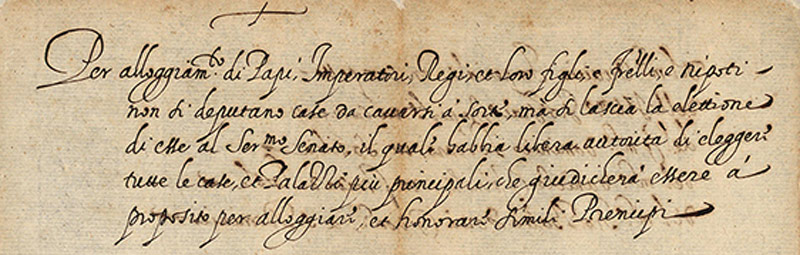 Per alloggiam.to di Papi, Imperatori, Regi, et loro figli, e fr̃elli, e nipoti
non si deputano case da cavarsi à sorte, mà si lascia la elettione
di esse al Ser.mo Senato, il quale habbia libera autorità di eleggere
tutte le case, et Palazzi più principali, che giudicherà essere à
proposito per alloggiare, et honorare simili Prencipi